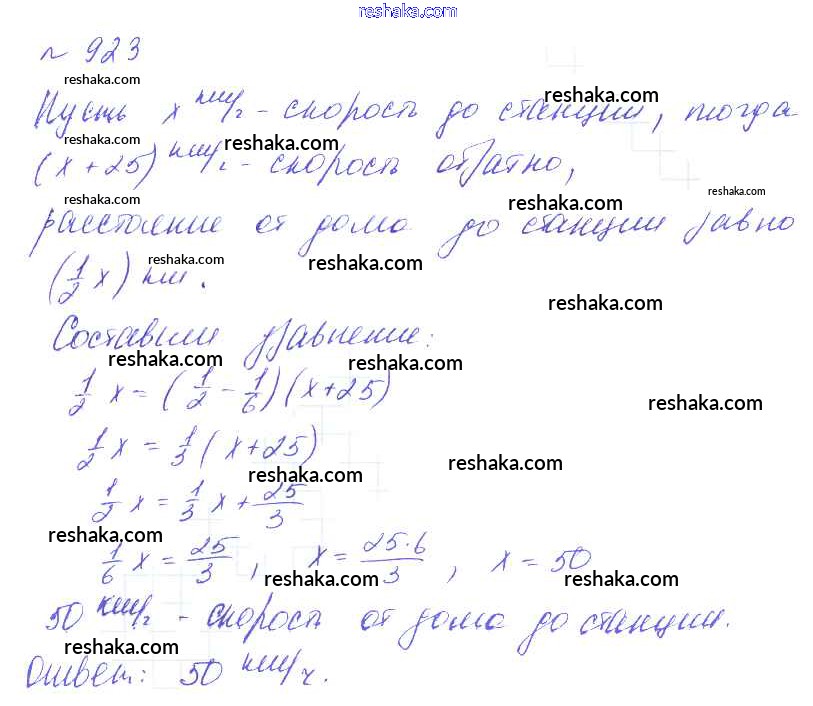 reshaka.com
№ 923
reshaka.com
Пусть x км/ч - скорость до станции, тогда
reshaka.com
reshaka.com reshaka.com
(x + 25) км/ч - скорость обратно,
reshaka.com
reshaka.com reshaka.com
расстояние от дома до станции равно
(1/2 x) км.
reshaka.com reshaka.com
reshaka.com
Составим уравнение:
reshaka.com reshaka.com
1/2 x = (1/2 - 1/6)(x+25)
reshaka.com
1/2 x = 1/3 (x+25)
reshaka.com reshaka.com
1/2 x = 1/3 x + 25/3
reshaka.com
1/6 x = 25/3, x = 25·6/3, x = 50
reshaka.com reshaka.com
50 км/ч - скорость от дома до станции.
reshaka.com
Ответ: 50 км/ч.